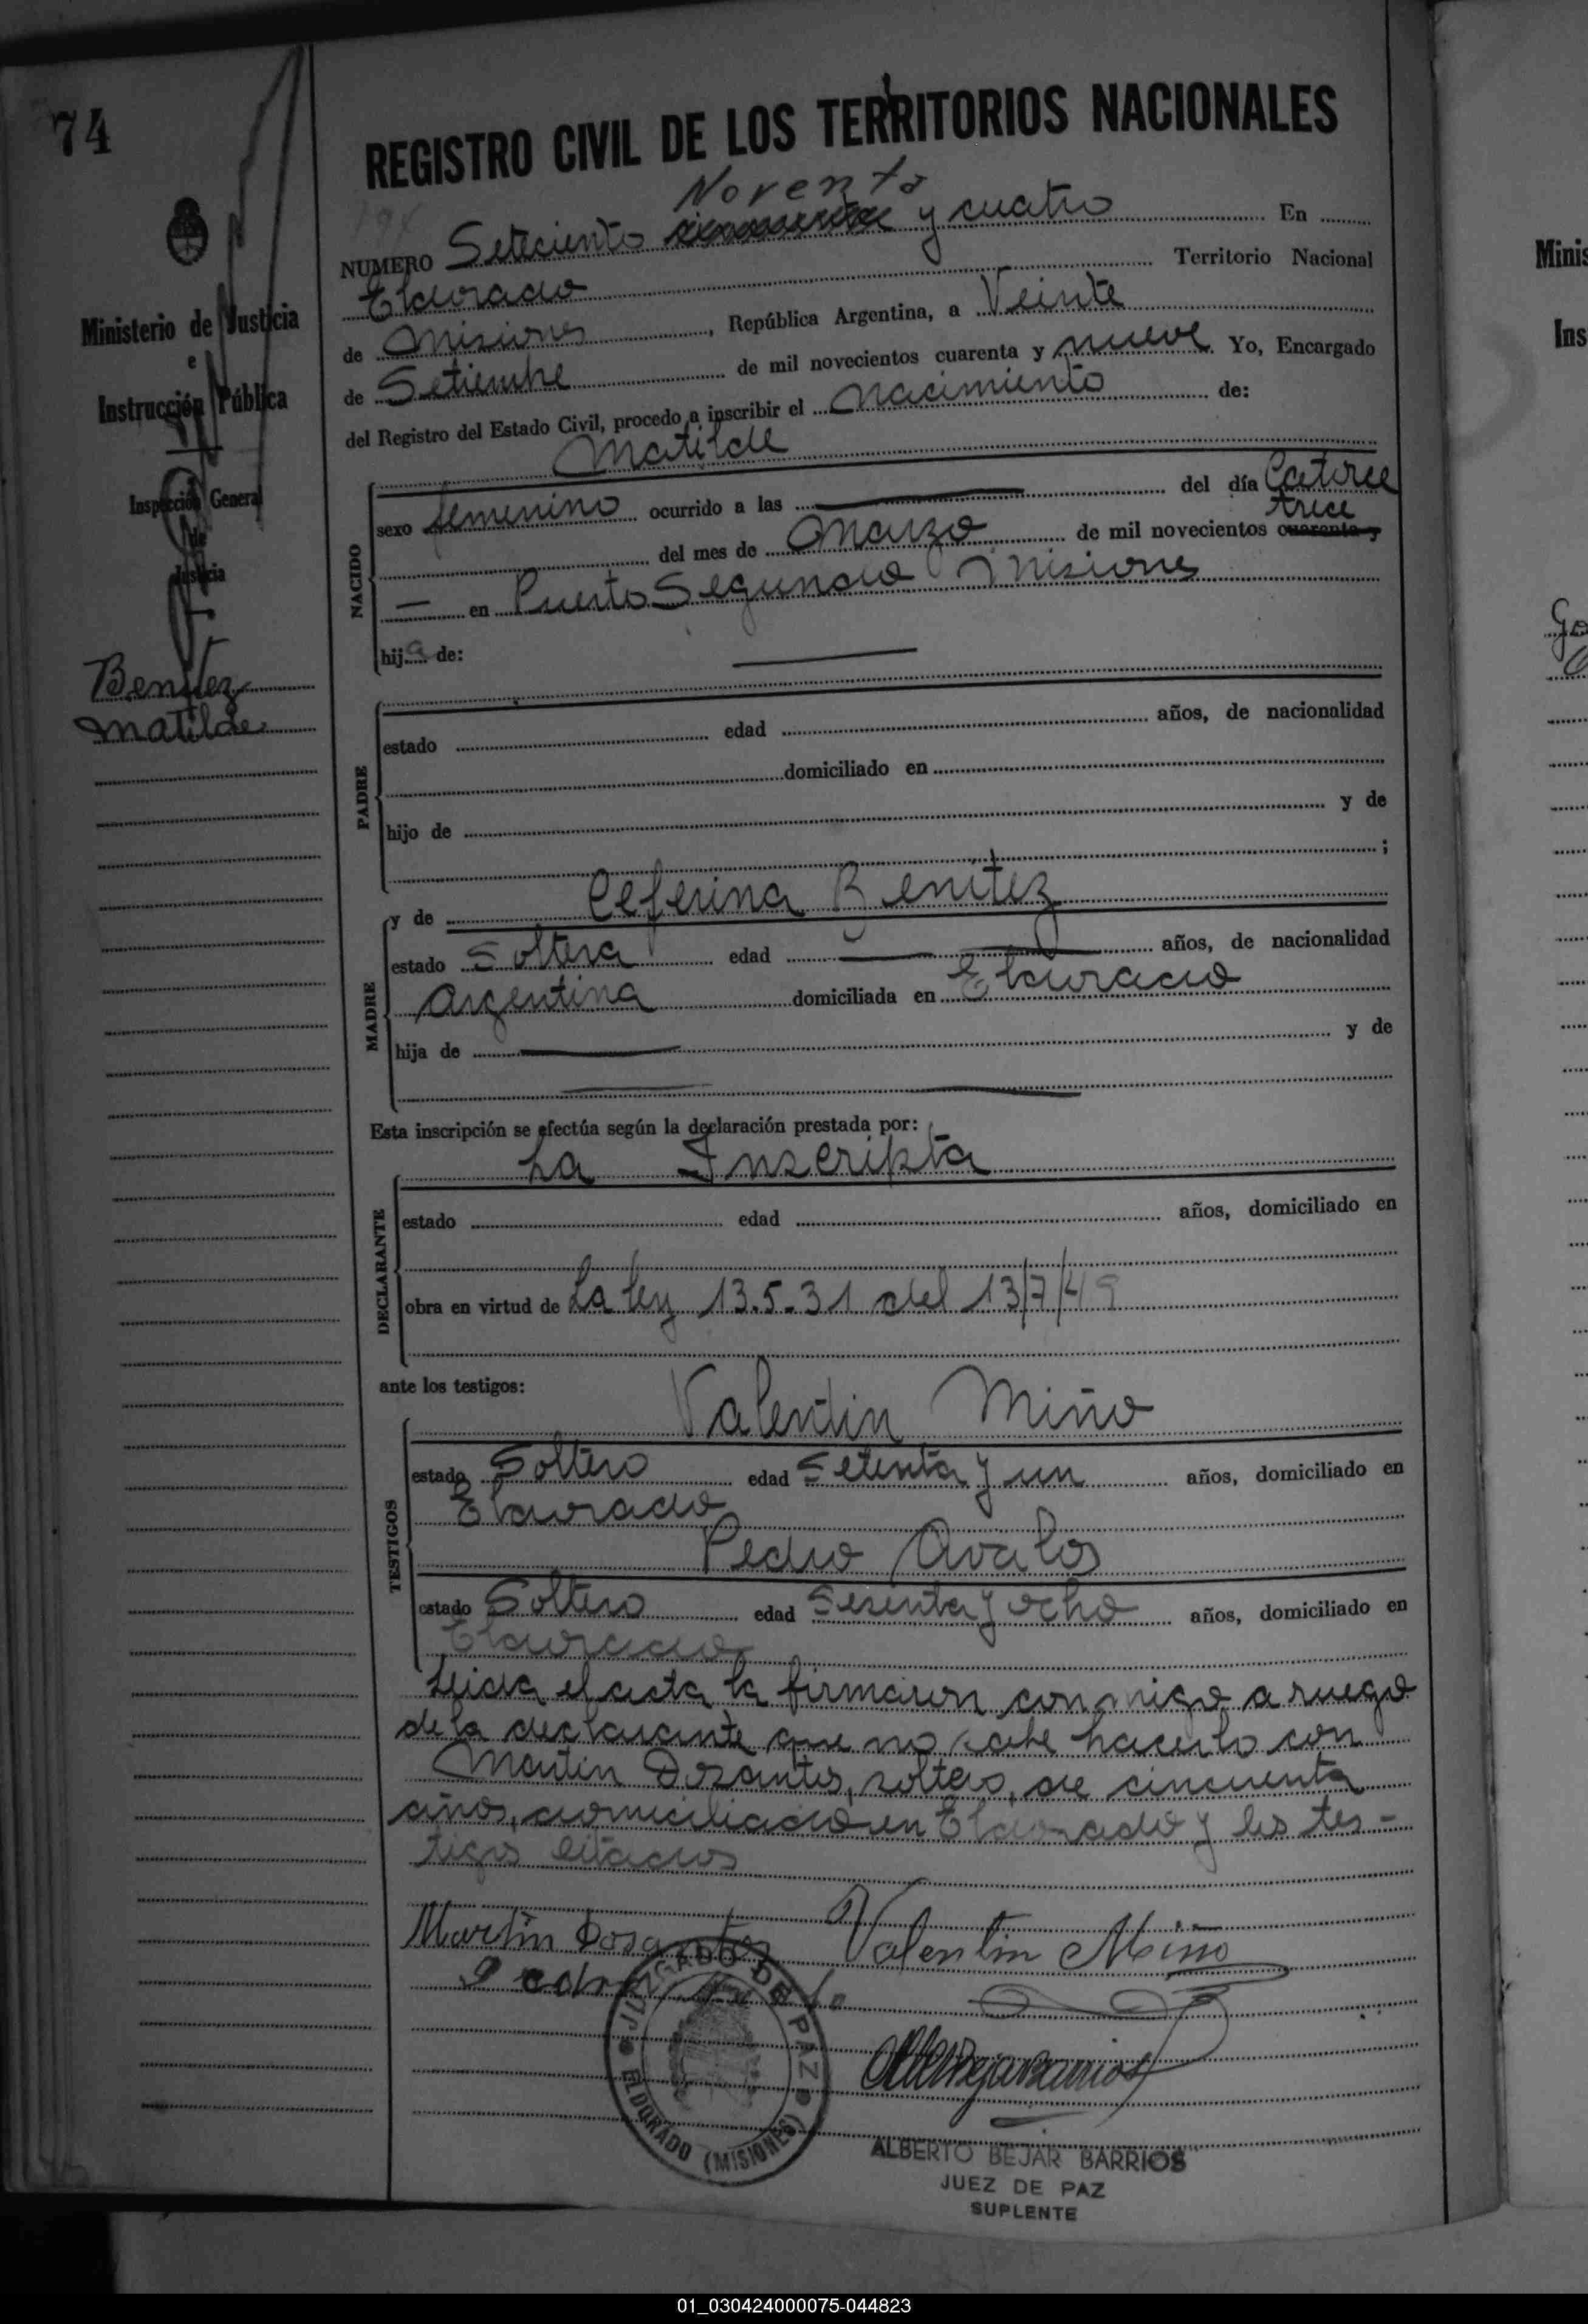 74
REGISTRO CIVIL DE LOS TERRITORIOS NACIONALES
Noventa
NUMERO Seteciento y cuatro En
Eldorado Territorio Nacional
de Misiones, República Argentina, a Veinte
de Setiembre de mil novecientos cuarenta y nueve. Yo, Encargado
del Registro del Estado Civil, procedo a inscribir el nacimiento de:
Matilde
Ministerio de Justicia
e
Instrucción Pública
Inspección General
de
Justicia
Benitez
Matilde
NACIDO
sexo femenino ocurrido a las del día Catorce
trece
del mes de Marzo de mil novecientos cuarenta y
en Puerto Segundo Misiones
hija de:
PADRE
estado edad años, de nacionalidad
domiciliado en
hijo de y de
;
MADRE
y de Ceferina Benitez
estado Soltera edad años, de nacionalidad
Argentina domiciliada en Eldorado
hija de y de
Esta inscripción se efectúa según la declaración prestada por:
La Inscripta
DECLARANTE
estado edad años, domiciliado en
obra en virtud de La ley 13.5.31 del 13/7/49
ante los testigos:
Valentin Miño
TESTIGOS
estado Soltero edad Setenta y un años, domiciliado en
Eldorado
Pedro Avalos
estado Soltero edad Sesenta y ocho años, domiciliado en
Eldorado
Leida el acta la firmaron conmigo a ruego
de la declarante que no sabe hacerlo con
Martin Dosantos, soltero, de cincuenta
años, domiciliado en Eldorado y los tes-
tigos citados
Martin Dosantos Valentin Miño
Pedro
JUZGADO DE PAZ
ELDORADO (MISIONES)
ALBERTO BEJAR BARRIOS
JUEZ DE PAZ
SUPLENTE
Minis
Ins
01_030424000075-044823